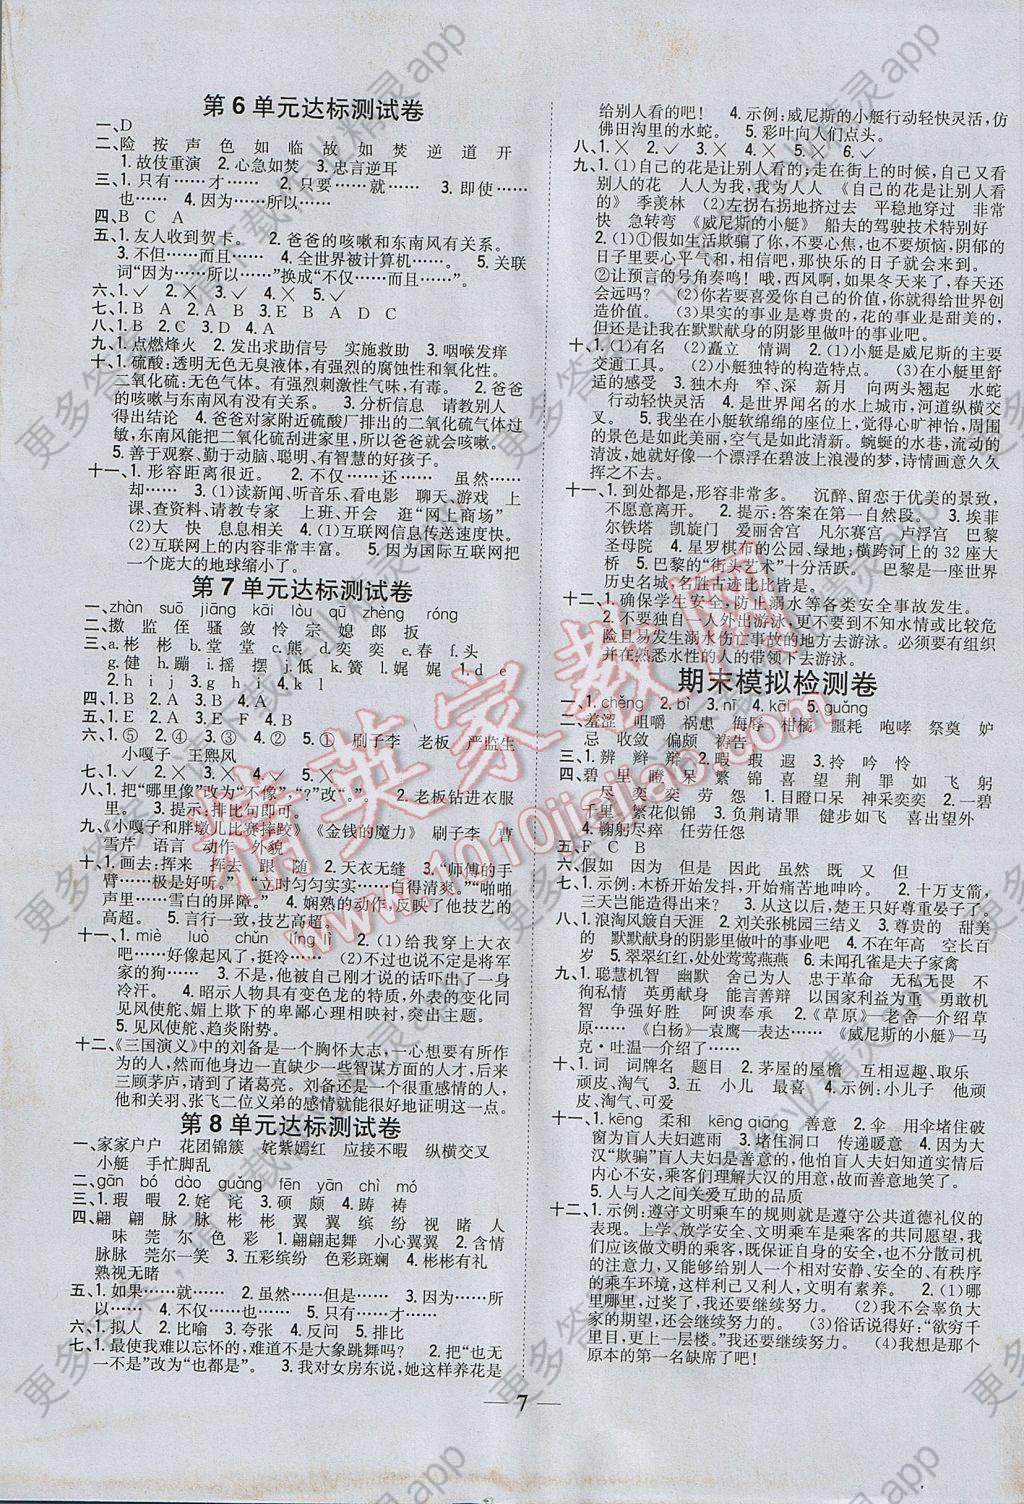 第6单元达标测试卷
一、D
二、险 按 声 色 如 临 故 如 焚 逆 道 开
1.故伎重演 2.心急如焚 3.忠言逆耳
三、1.只有……才…… 2.只要……就…… 3.即使……
也…… 4.因为……所以……
四、B C A
五、1.友人收到贺卡。 2.爸爸的咳嗽和东南风有关系。
3.不但……而且…… 4.全世界被计算机……。 5.关联
词“因为……所以……”换成“不仅……而且……”
六、1.√ 2.× 3.× 4.× 5.√
七、B A B A B A E B A D C
八、1.B 2.C 3.D 4.A
九、1.点燃烽火 2.发出求助信号 实施救助 3.咽喉发痒
十、1.硫酸:透明无色无臭液体,有强烈的腐蚀性和氧化性。
二氧化硫:无色气体。有强烈刺激性气味,有毒。 2.爸爸
的咳嗽与东南风有没有关系。 3.分析信息 请教别人
得出结论 4.爸爸对家附近硫酸厂排出的二氧化硫气体过
敏,东南风能把二氧化硫刮进家里,所以爸爸就会咳嗽。
5.善于观察、勤于动脑、聪明、有智慧的好孩子。
十一、1.形容距离很近。 2.不仅……还…… 虽然……
却…… 3.(1)读新闻、听音乐、看电影 聊天、游戏 上
课、查资料、请教专家 上班、开会 逛“网上商场”
(2)大 快 息息相关 4.(1)互联网信息传送速度快。
(2)互联网上的内容非常丰富。 5.因为国际互联网把
一个庞大的地球缩小了。
第7单元达标测试卷
一、zhàn suō jiāng kāi lòu qū zhèng róng
二、擞 监 侄 骚 敛 怜 宗 媳 郎 扳
三、a.彬 彬 b.堂 堂 c.熊 d.奕 奕 e.春 f.头
g.健 h.蹦 i.摇 摆 j.低 k.簧 l.娓 娓 1.d e
2.h i c 3.l a 4.j k f
四、1.B 2.A 3.B 4.A
五、1.E 2.A 3.F 4.B 5.C 6.D
六、1.⑤ 2.④ 3.③ 4.② 5.① 刷子李 老板 严监生
小嘎子 王熙凤
七、1.√ 2.× 3.× 4.√ 5.×
八、1.把“哪里像”改为“不像”,“?”改“。” 2.老板钻进衣服
里。 3.提示:排比句即可。
九、《小嘎子和胖墩儿比赛摔跤》 《金钱的魔力》 刷子李 曹
雪芹 语言 动作 外貌
十、1.画去:挥来 挥去 跟 随 2.天衣无缝 3.“师傅的手
臂……极是好听。”“立时匀匀实实……白得清爽。”“啪啪
声里……雪白的屏障。” 4.娴熟的动作,反映了他技艺的
高超。 5.言行一致,技艺高超。
十一、1.miè luò chǔn līng lì 2.(1)给我穿上大衣
吧……好像起风了,挺冷…… (2)不过也说不定是将军
家的狗…… 3.不是,是他因被自己刚才说的话吓出了一身
冷汗。 4.昭示人物具有变色龙的特质,外表的变化同
见风使舵、媚上欺下的卑鄙心理相映衬,突出主题。
5.见风使舵、趋炎附势。
十二、《三国演义》中的刘备是一个胸怀大志,一心想要有所作
为的人,然而他身边一直缺少一些智谋方面的人才,后来
三顾茅庐,请到了诸葛亮。刘备还是一个很重感情的人,他
和关羽、张飞二位义弟的感情就能很好地证明这一点。
第8单元达标测试卷
一、家家户户 花团锦簇 姹紫嫣红 应接不暇 纵横交叉
小艇 手忙脚乱
二、gān bó dào guǎng fēn yān chì mó
三、1.瑕 暇 2.姹 诧 3.硕 颇 4.踌 祷
四、翩 翩 脉 脉 彬 彬 翼 翼 缤 纷 视 睹 人
味 莞 尔 色 彩 1.翩翩起舞 小心翼翼 2.含情
脉脉 莞尔一笑 3.五彩缤纷 色彩斑斓 4.彬彬有礼
熟视无睹
五、1.如果……就…… 2.虽然……但是…… 3.因为……所
以…… 4.不仅……也…… 5.只有……才……
六、1.拟人 2.比喻 3.夸张 4.反问 5.排比
七、1.最使我难以忘怀的,难道不是大象跳舞吗? 2.把“也无
一不是”改为“也都是”。 3.我对女房东说,她这样养花是
给别人看的吧! 4.示例:威尼斯的小艇行动轻快灵活,仿
佛田沟里的水蛇。 5.彩叶向人们点头。
八、1.× 2.√ 3.× 4.× 5.× 6.√
九、1.(1)自己的花是让别人看的;走在街上的时候,自己又看
别人的花 人人为我,我为人人 《自己的花是让别人看
的》 季羡林 (2)左拐右拐地挤过去 平稳地穿过 非常
快 急转弯 《威尼斯的小艇》 船夫的驾驶技术特别好
2.(1)①假如生活欺骗了你,不要心焦,也不要烦恼,阴郁的
日子里要心平气和,相信吧,那快乐的日子就会来到。
②让预言的号角奏鸣!哦,西风啊,如果冬天来了,春天还
会远吗? (2)你若要喜爱你自己的价值,你就得给世界创
造价值。 (3)果实的事业是尊贵的,花的事业是甜美的,
但还是让我在默默献身的阴影里做叶的事业吧。
十、1.(1)有名 (2)矗立 情调 2.(1)小艇是威尼斯的主要
交通工具。 (2)小艇独特的构造特点。 (3)在小艇里舒
适的感受 3.独木舟 窄、深 新月 向两头翘起 水蛇
行动轻快灵活 4.是世界闻名的水上城市,河道纵横交
叉。 5.我坐在小艇软绵绵的座位上,觉得心旷神怡,周围
的一切如此美丽,空气是如此清新。蜿蜒的水巷,流动的
清波,宛如一个漂浮在碧波上浪漫的梦,诗情画意久久
挥之不去。
十一、1.到处都是,形容非常多。 沉醉、留恋于优美的景致,
不愿意离开。 2.提示:答案在第一自然段。 3.埃菲
尔铁塔 凯旋门 爱丽舍宫 凡尔赛宫 卢浮宫 巴黎
圣母院 4.星罗棋布的公园、绿地;横跨河上的32座大
桥 5.巴黎的“街头艺术”十分活跃。 巴黎是一座世界
历史名城,名胜古迹比比皆是。
十二、1.确保学生安全,防止溺水等各类安全事故发生。
2.不要独自一人外出游泳,更不要到不知水情或比较危
险且易发生溺水伤亡事故的地方去游泳。必须要有组织
并在熟悉水性的人的带领下去游泳。
期末模拟检测卷
一、1.chěng 2.bǐ 3.nī 4.kāi 5.guǎng
二、羞涩 咀嚼 祸患 侮辱 柑橘 噩耗 咆哮 祭奠 妒
忌 收敛 偏颇 祷告
三、1.辨 辫 辩 2.暇 瑕 遐 3.拎 吟 怜
四、碧 里 瞪 呆 繁 锦 喜 望 荆 罪 如 飞 躬
尽 奕 奕 劳 怨 1.目瞪口呆 神采奕奕 2.一碧
千里 繁花似锦 3.负荆请罪 健步如飞 喜出望外
4.鞠躬尽瘁 任劳任怨
五、F C B
六、假如 因为 但是 因此 虽然 既 又 但
七、1.示例:木桥开始发抖,开始痛苦地呻吟。 2.十万支箭,
三天岂能造得出来? 3.这么说来,楚王只好尊重晏子。
八、1.浪淘风簸自天涯 2.刘关张桃园三结义 3.尊贵的 甜美
的 默默献身的阴影里做叶的事业吧 4.不在年高 空长百
岁 5.翠翠红红,处处莺莺燕燕 6.未闻孔雀是夫子家禽
九、1.聪慧机智 幽默 舍己为人 忠于革命 无私无畏 不
徇私情 英勇献身 能言善辩 以国家利益为重 勇敢机
智 争强好胜 阿谀奉承 2.《草原》—老舍—介绍草
原…… 《白杨》—袁鹰—表达…… 《威尼斯的小艇》—马
克·吐温—介绍了……
十、1.词 词牌名 题目 2.茅屋的屋檐 互相逗趣、取乐
顽皮、淘气 3.五 小儿 最喜 4.示例:小儿子 他顽
皮、淘气、可爱。
十一、1.kēng 柔和 kēng qiāng 善意 2.伞 用伞堵住破
窗 为盲人夫妇遮雨 3.堵住洞口 传递暖意 4.因为大
汉“欺骗”盲人夫妇是善意的,他怕盲人夫妇知道实情后
内心不安,更能让读者们理解大汉的用意,所以更富有诗意。
5.人与人之间关爱互助的品质
十二、1.示例:遵守文明乘车的规则就是遵守公共道德礼仪的
表现。上学、放学安全、文明乘车是我们的共同愿望,我
们应该做文明的乘客,既保证自身的安全,也不分散司机
的注意力,又能给乘客一个相对安静、安全的、有秩序的
乘车环境,这样利己又利人,文明有素养。 2.(1)哪
里哪里,过奖了,我还要继续努力。 (2)我不会辜负大
家的期望,还会继续努力。 (3)俗话说得好:“欲穷千
里目,更上一层楼。”我还要继续努力。 (4)我想是
原本的第一名缺席了吧!
7
精英家教网
www.1010jiajiao.com
更多答案,请下载作业精灵app